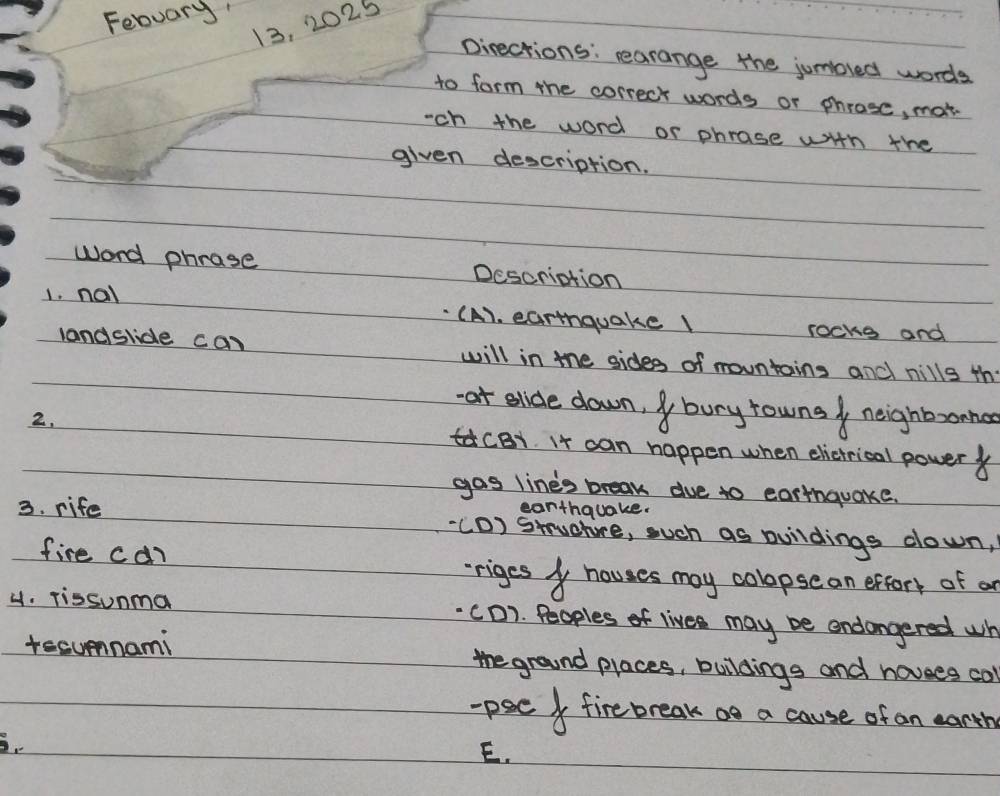 Febuary,
13, 2025
Directions: rearange the jumbled words
to form the correct words or phrase, mat-
-ch the word or phrase with the
given description.
Word phrase
Description
1. nal
.(A). earthquake 1 rocks and
landslide ca)
will in the sides of mountains and hills th-
-at slide down, & bury towns & neighboorhoo
2.
(B). it can happen when elictrical power &
gas line's break due to earthquake.
earthquake.
3. rife
-(D) structure, such as buildings down,
fire cd)
-riges & houses may colapse an effort of an
4. Tissunma
.(D). Peoples of lives may be endangered wh
the ground places, buildings and houses col
-pse & firebreak as a cause of an earth
5.
E.